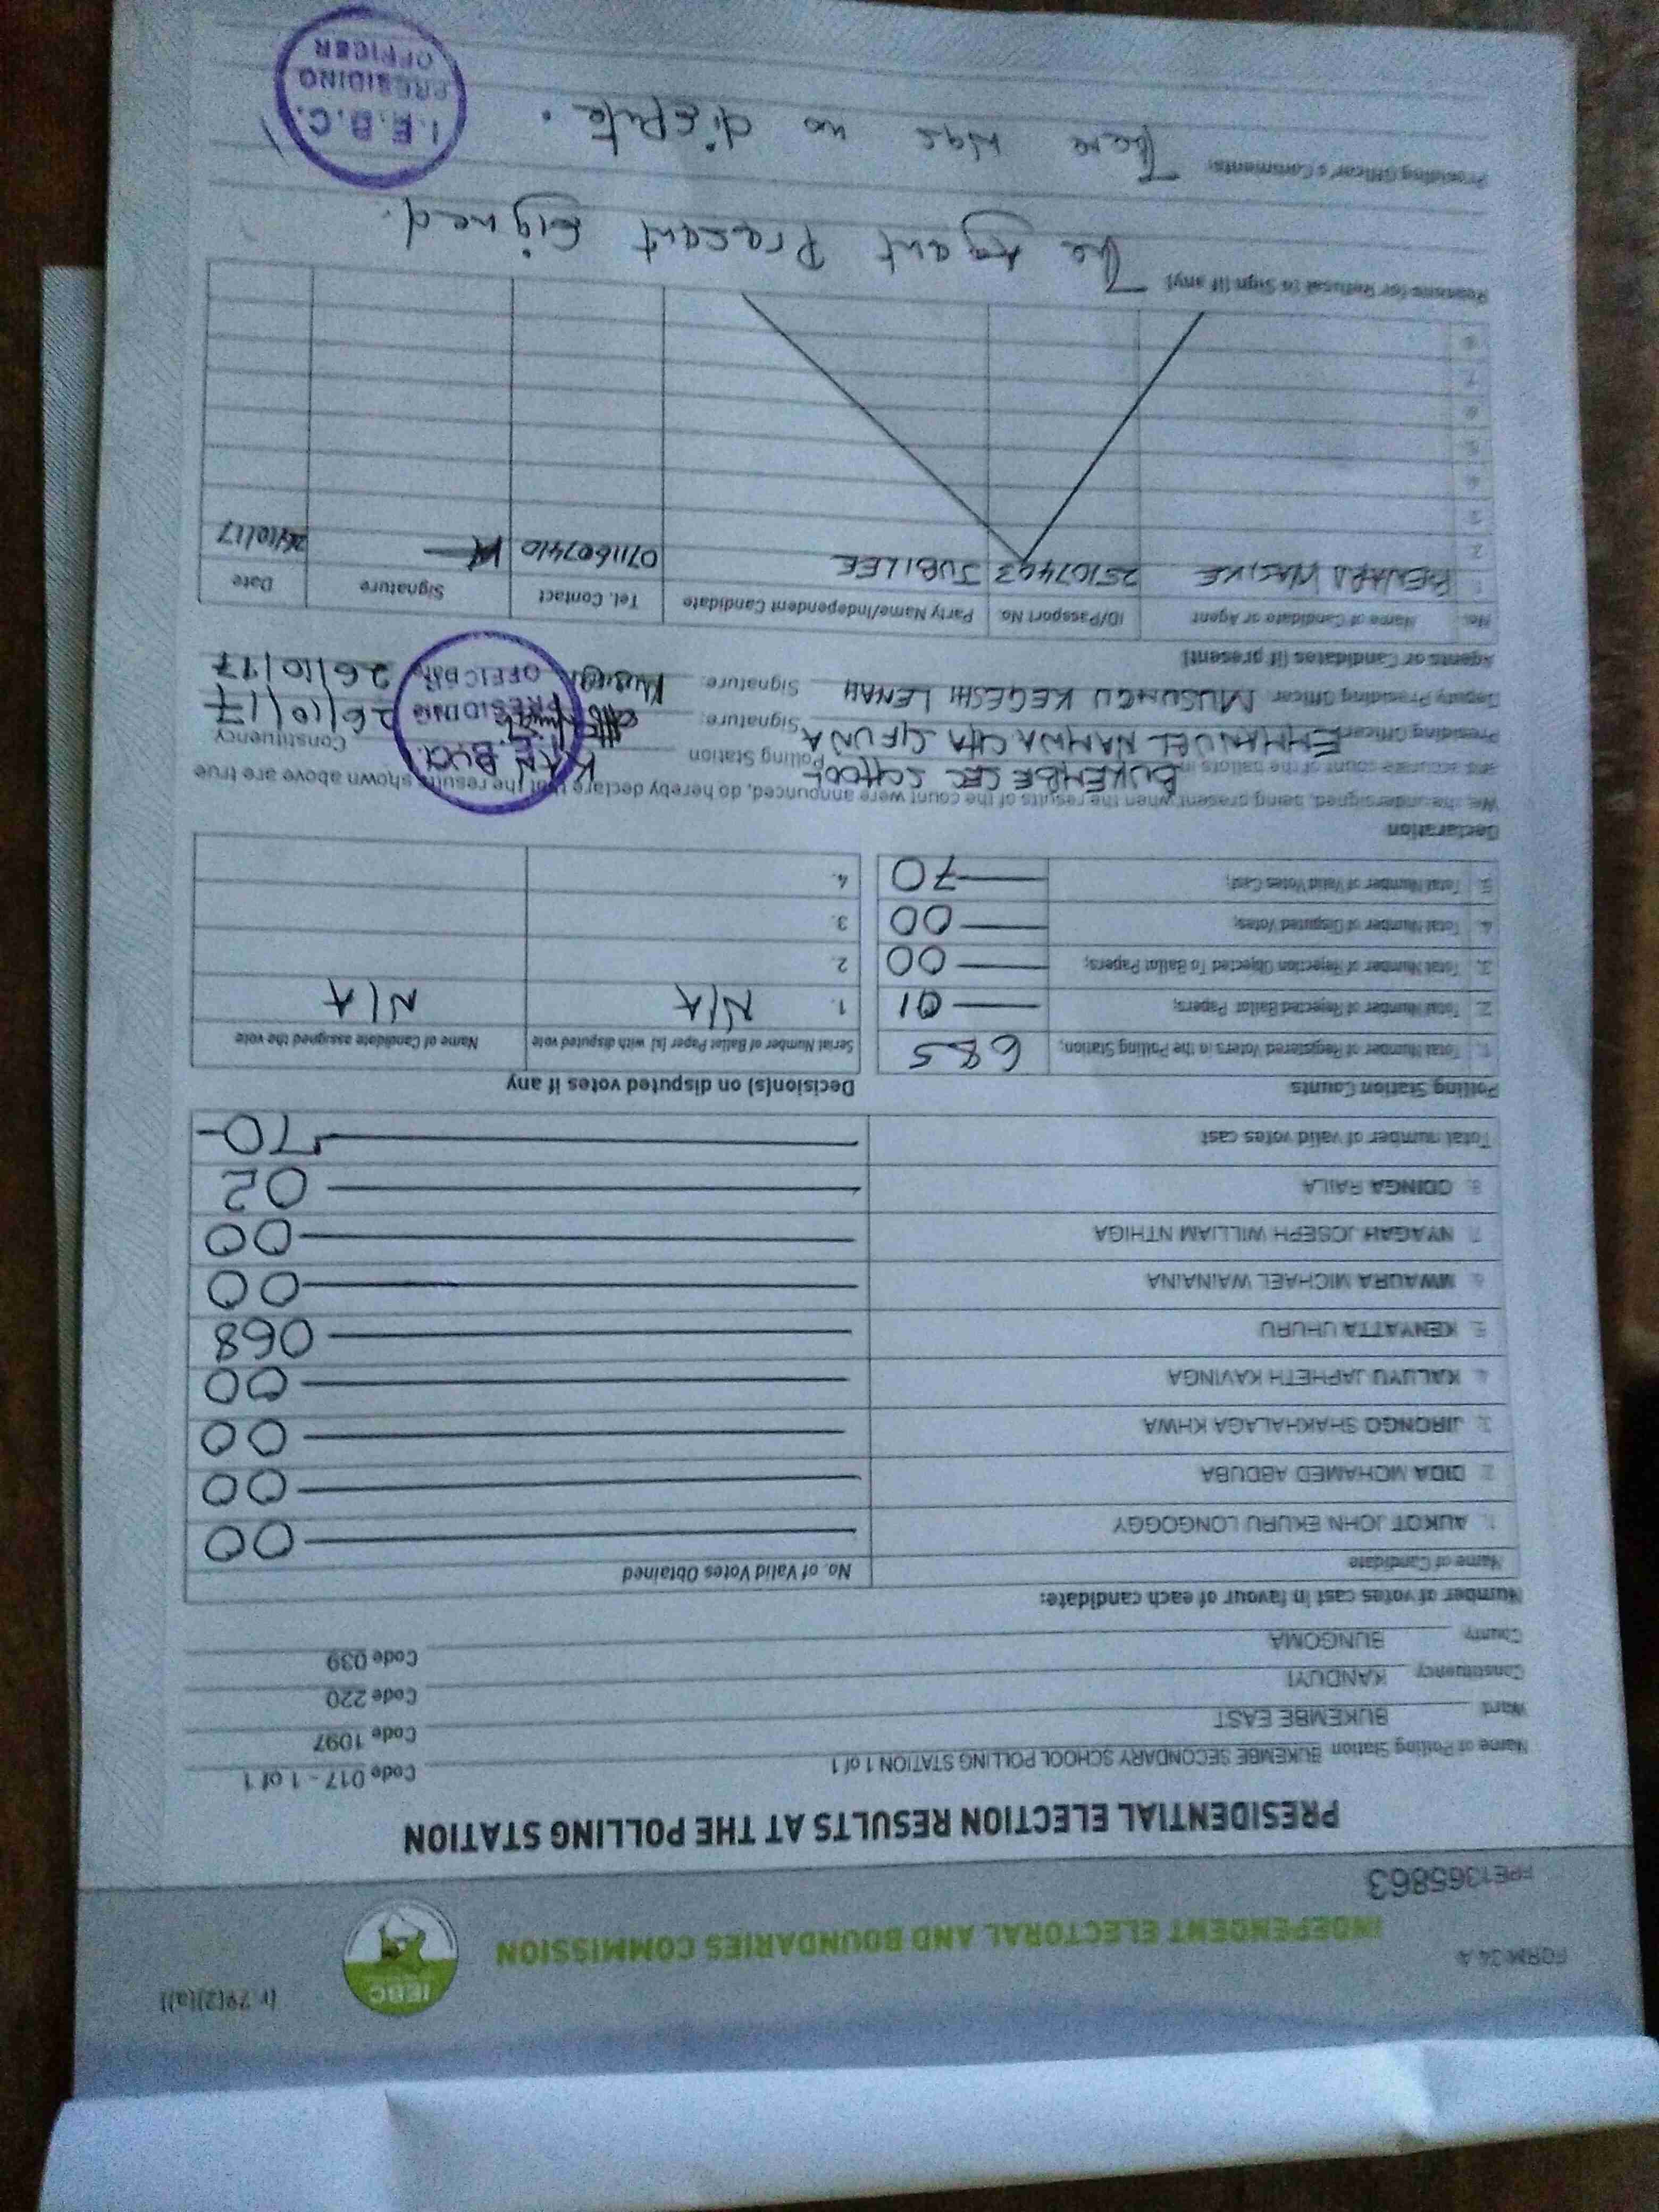 FORM 34 A
(r.79(2)(a))
INDEPENDENT ELECTORAL AND BOUNDARIES COMMISSION
IEBC
FPE1365863
PRESIDENTIAL ELECTION RESULTS AT THE POLLING STATION
Name of Polling Station BUKEMBE SECONDARY SCHOOL POLLING STATION 1 of 1 Code 017 - 1 of 1
Ward BUKEMBE EAST Code 1097
Constituency KANDUYI Code 220
County BUNGOMA Code 039
Number of votes cast in favour of each candidate:
Name of Candidate No. of Valid Votes Obtained
1. AUKOT JOHN EKURU LONGOGGY 00
2. DIDA MOHAMED ABDUBA 00
3. JIRONGO SHAKHALAGA KHWA 00
4. KALUYU JAPHETH KAVINGA 00
5. KENYATTA UHURU 068
6. MWAURA MICHAEL WAINAINA 00
7. NYAGAH JOSEPH WILLIAM NTHIGA 00
8. ODINGA RAILA 02
Total number of valid votes cast 70
Polling Station Counts
1. Total Number of Registered Voters in the Polling Station; 685
2. Total Number of Rejected Ballot Papers; 01
3. Total Number of Rejection Objected To Ballot Papers; 00
4. Total Number of Disputed Votes; 00
5. Total Number of Valid Votes Cast; 70
Decision(s) on disputed votes if any
Serial Number of Ballot Paper (s) with disputed vote Name of Candidate assigned the vote
1. N/A N/A
2.
3.
4.
Declaration
We, the undersigned, being present when the results of the count were announced, do hereby declare that the results shown above are true
and accurate count of the ballots in BUKEMBE SEC SCHOOL Polling Station Constituency
Presiding Officer: EMMANUEL NAMWACHA SIFUNA Signature: 26/10/17
Deputy Presiding Officer: MUSUNGU KEGESHI LENAH Signature: 26/10/17
PRESIDING
OFFICER
Agents or Candidates (if present)
No. Name of Candidate or Agent ID/Passport No. Party Name/Independent Candidate Tel. Contact Signature Date
1. 25107443 JUBILEE 0711607410 26/10/17
2
3
4
5
6
7
8
Reasons for Refusal to Sign (if any) The Agent Present signed.
Presiding Officer's Comments: There was no dispute.
I.E.B.C.
PRESIDING
OFFICER